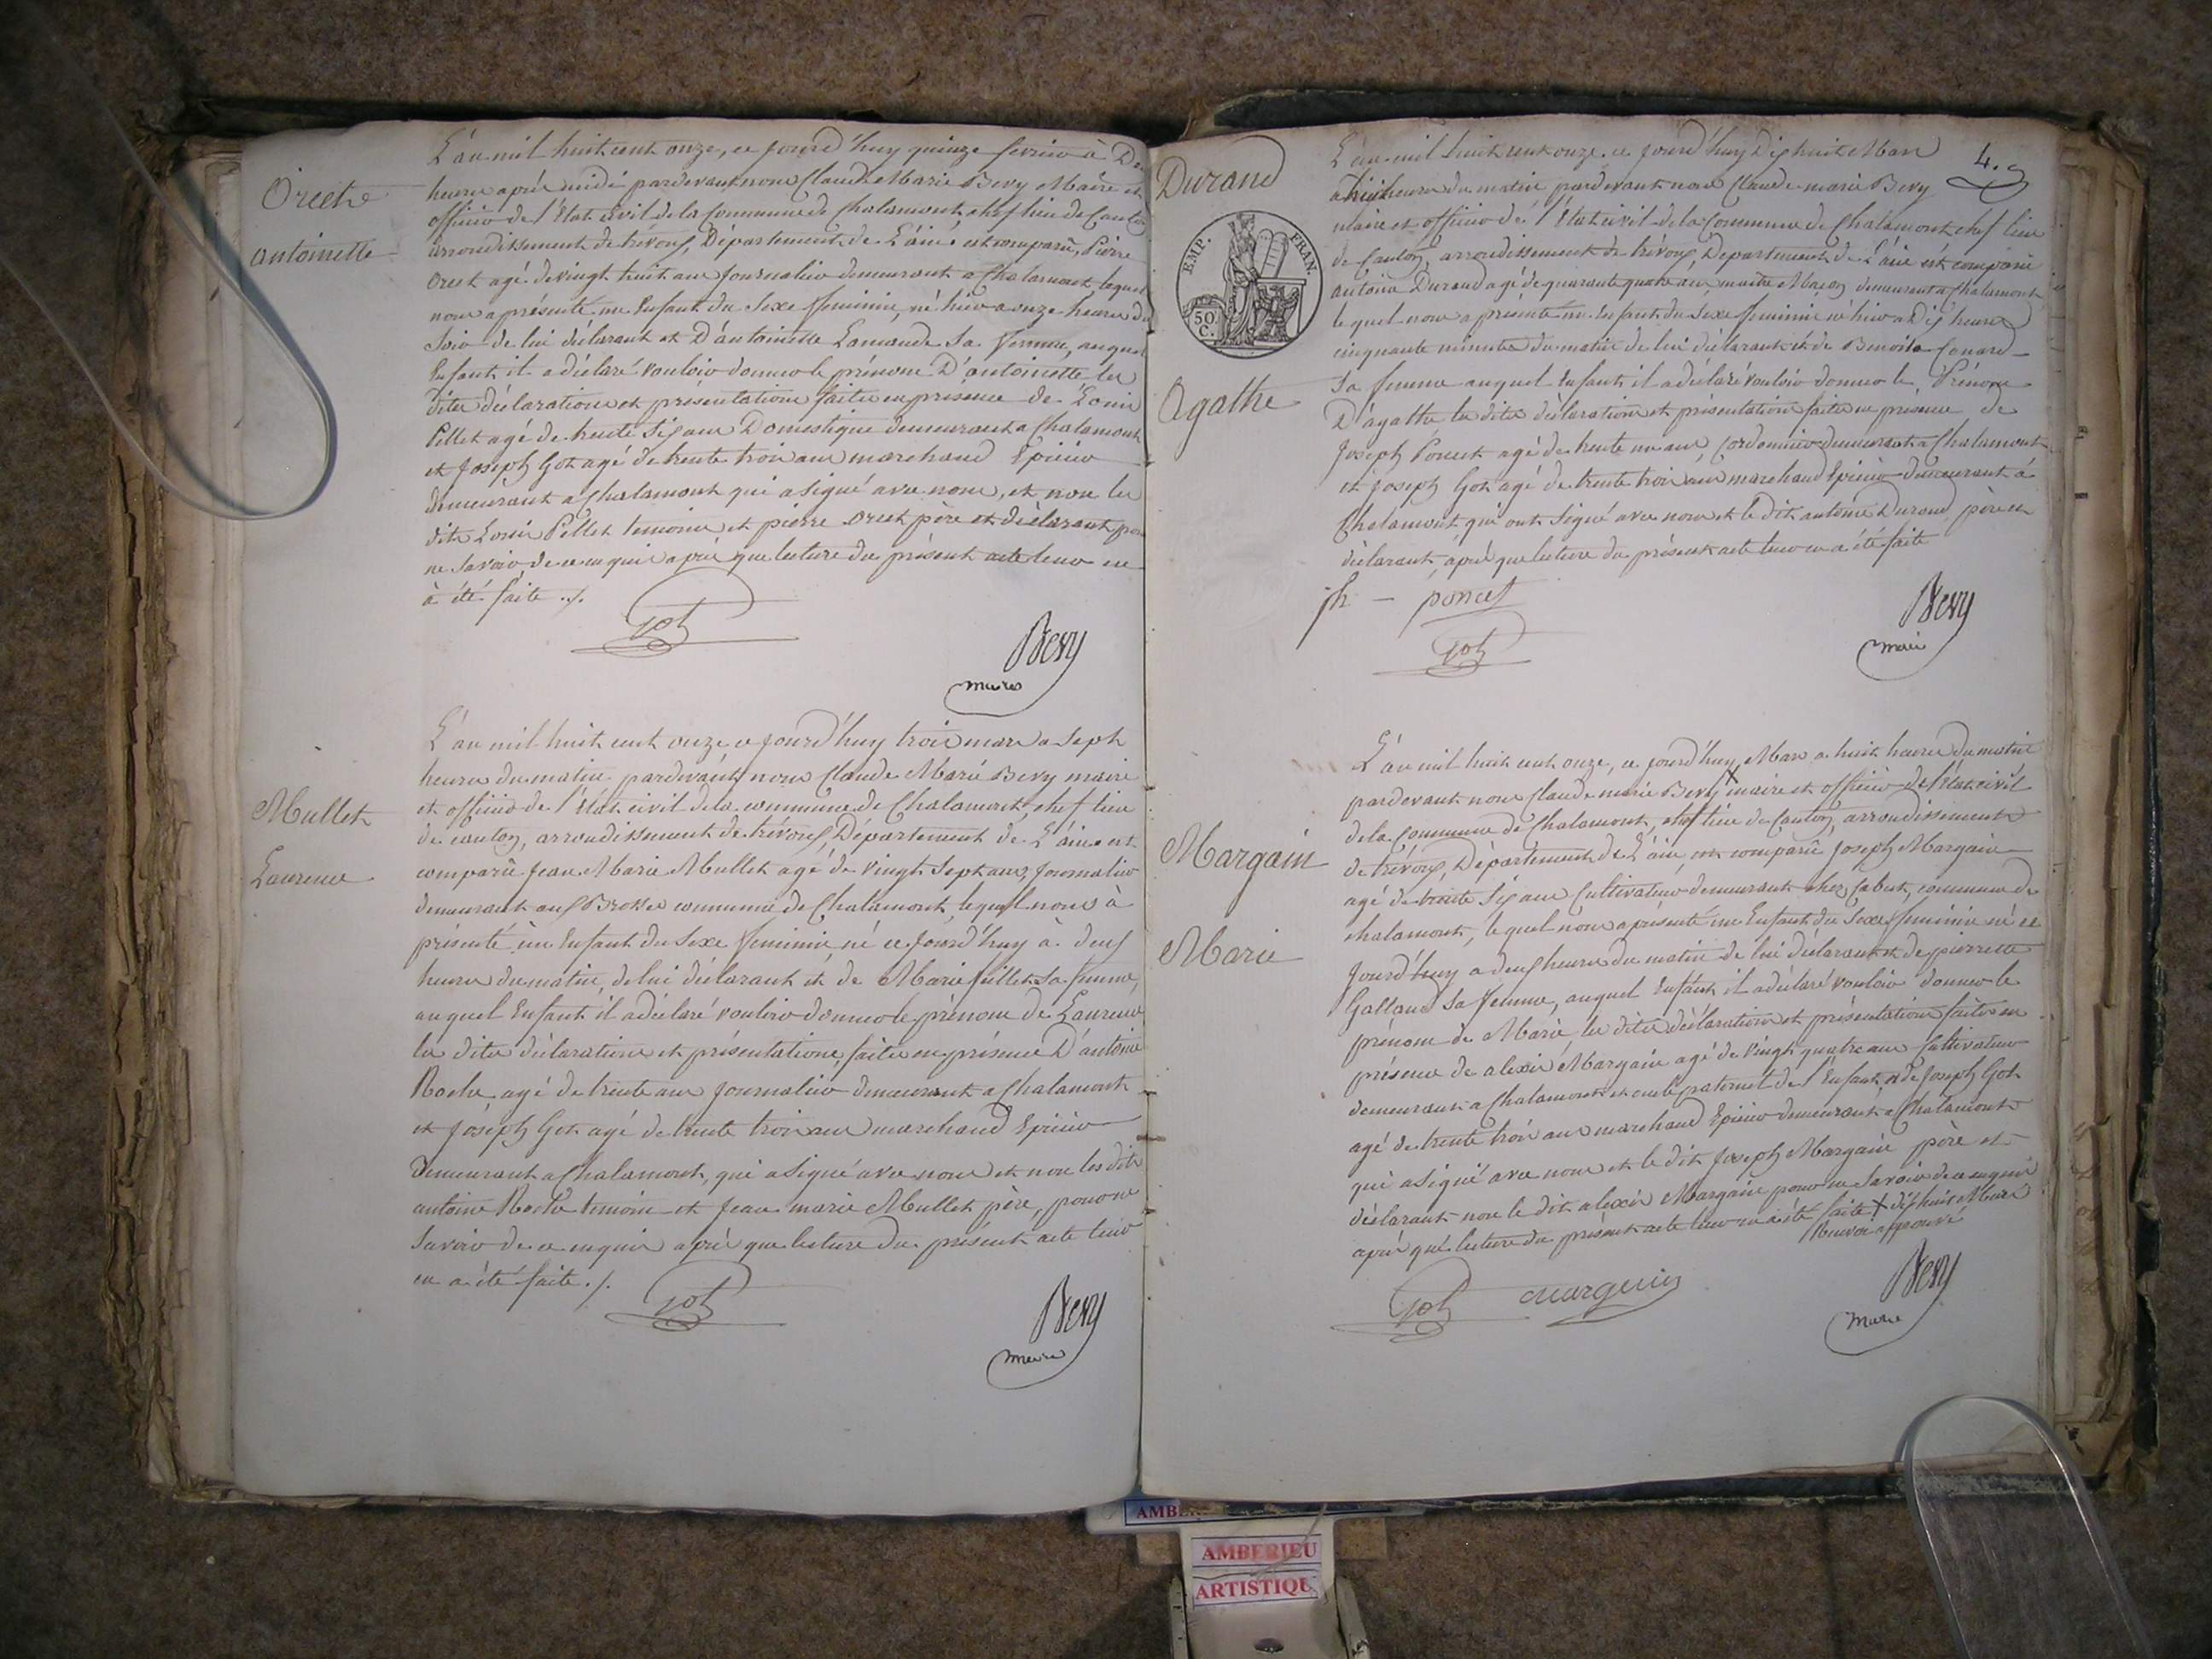 Oreste
antoinette
L'an mil huit cent onze, ce jourd'huy quinze fevrier à
heure après midi pardevant nous Claude Marie Bevy Maire et
officier de l'état civil de la Commune de Chalamont chef lieu de Canton
arrondissement de trévoux, Département de L'ain est comparû, Pierre
Orest agé de vingt huit ans journalier demeurant a Chalamont lequel
nous a présenté un Enfant du Sexe feminin, né hier a onze heures du
Soir de lui déclarant et D'antoinette Sa femme, auquel
Enfant il a déclaré vouloir donner le prénom D'antoinette les
dites déclaration et présentation faites en présence de Louis
Pellet agé de trente Six ans Domestique demeurant a Chalamont
et Joseph Got agé de trente trois ans marchand Epicier
demeurant a Chalamont qui a signé avec nous, et non les
dits Louis Pellet temoin et pierre Orest père et déclarant pour
ne Savoir de ce enquis après que lecture du présent acte leur en
à été faite ./.
Got
Bevy
maire
Mullet
Laurence
L'an mil huit cent onze ce jourd'huy trois mars a Sept
heures du matin pardevant nous Claude Marie Bevy maire
et officier de l'état civil de la commune de Chalamont, chef lieu
de canton, arrondissement de trévoux, Département de L'ain est
comparû Jean Marie Mullet agé de vingt Sept ans, journalier
demeurant aux Brosses commune de Chalamont, lequel nous à
présenté un Enfant du Sexe feminin, né ce jourd'huy à deux
heures du matin, de lui déclarant et de Marie Sa femme,
auquel Enfant il a déclaré vouloir donner le prénom de Laurence
les dites déclaration et présentation, faites en présence D'antoine
Roche agé de trente ans journalier demeurant a Chalamont
et Joseph Got agé de trente trois ans marchand Epicier
demeurant a Chalamont, qui a signé avec nous et non les dits
antoine Roche temoin et Jean marie Mullet père, pour ne
Savoir de ce enquis après que lecture du présent acte leur
en a été faite ./.
Got
Bevy
maire
4.
Durand
EMP. FRAN.
50 C.
Agathe
L'an mil huit cent onze, ce jourd'huy Dix huit Mars
a huit heures du matin pardevant nous Claude marie Bevy
maire et officier de l'état civil de la Commune de Chalamont chef lieu
de Canton, arrondissement de trévoux, Departement de L'ain est comparu
antoine Durand agé de quarante quatre ans, maitre Maçon demeurant a Chalamont
lequel nous a présenté un Enfant du Sexe feminin né hier a Dix heures
cinquante minutes du matin de lui déclarant et de Benoite
Sa femme auquel Enfant il a déclaré vouloir donner le Prénom
D'agathe les dites déclaration et présentation faites en présence de
Joseph Poncet agé de trente un ans, Cordonnier demeurant a Chalamont
et joseph Got agé de trente trois ans marchand Epicier demeurant à
Chalamont qui ont signé avec nous et le dit antoine Durand père et
déclarant, après que lecture du présent acte leur en a été faite
jh - poncet
Got
Bevy
maire
Margain
Marie
L'an mil huit cent onze, ce jourd'huy x Mars a huit heures du matin
pardevant nous Claude marie Bevy maire et officier de l'état civil
de la Commune de Chalamont, chef lieu de Canton, arrondissement
de trévoux, Département de L'ain, est comparû Joseph Margain
agé de trente Six ans Cultivateur demeurant chez commune de
chalamont, lequel nous a présenté un Enfant du Sexe feminin né ce
jourd'huy a deux heures du matin de lui déclarant et de pierrette
Galland Sa femme, auquel Enfant il a déclaré vouloir donner le
prénom de Marie, les dites déclaration et présentation faites en
présence de alexis Margain agé de vingt quatre ans Cultivateur
demeurant a Chalamont et oncle paternel de l'Enfant, et de Joseph Got
agé de trente trois ans marchand Epicier demeurant a Chalamont
qui a signé avec nous et le dit Joseph Margain père et
déclarant non le dit alexis Margain pour ne Savoir de ce enquis
après que lecture du présent acte leur en a été faite x dix huit Mars
Renvoi approuvé
Got
Margain
Bevy
maire
AMBERIEU
ARTISTIQU